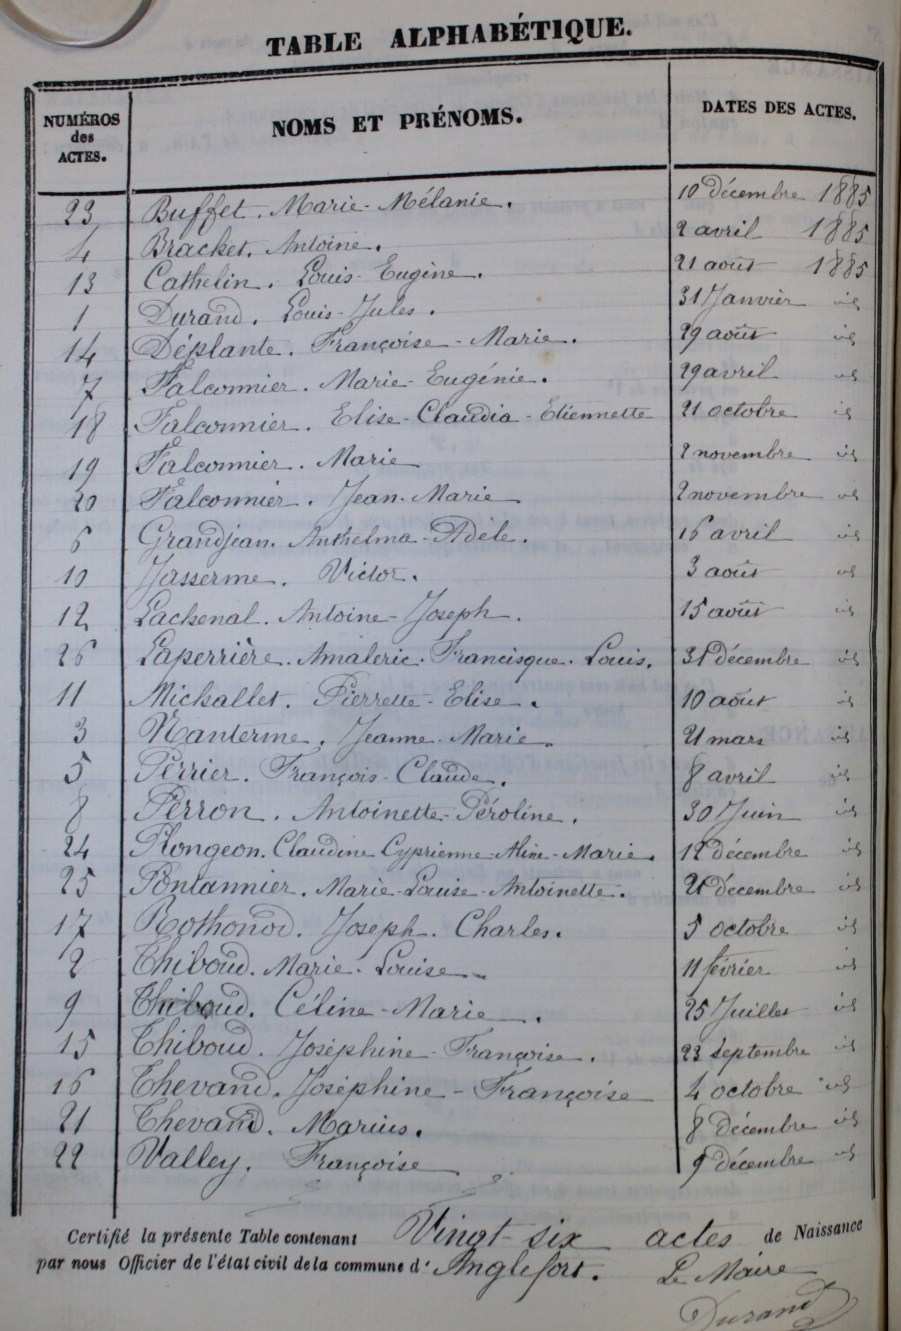 TABLE ALPHABÉTIQUE.
NUMÉROS des ACTES. NOMS ET PRÉNOMS. DATES DES ACTES.
23 Buffet. Marie-Mélanie. 10 décembre 1885
4 Brachet. Antoine. 2 avril 1885
13 Cathelin. Louis-Eugène. 21 août 1885
1 Durand. Louis-Jules. 31 Janvier id
14 Déplante. Françoise-Marie. 29 août id
7 Falconnier. Marie-Eugénie. 29 avril id
18 Falconnier. Elise-Claudia-Etiennette 21 octobre id
19 Falconnier. Marie 2 novembre id
20 Falconnier. Jean-Marie 2 novembre id
6 Grandjean. Anthelma-Adele. 16 avril id
10 Jasserme. Victor. 3 août id
12 Lachenal. Antoine-Joseph. 15 août id
26 Laperrière. Amaleric. Francisque. Louis. 31 décembre id
11 Michallet. Pierrette-Elise. 10 août id
3 Nanterme. Jeanne-Marie. 21 mars id
5 Perrier. François-Claude. 8 avril id
8 Perron. Antoinette-Péroline. 30 Juin id
24 Plongeon. Claudine Cyprienne-Alix-Marie. 12 décembre id
25 Pontannier. Marie-Louise-Antoinette. 21 décembre id
17 Rothonod. Joseph. Charles. 5 octobre id
2 Thiboud. Marie-Louise 11 février id
9 Thiboud. Céline-Marie. 25 Juillet id
15 Thiboud. Joséphine-Françoise. 23 septembre id
16 Thevand. Joséphine-Françoise 4 octobre id
21 Thevand. Marius. 8 décembre id
22 Valley. Françoise 9 décembre id
Certifié la présente Table contenant Vingt-six actes de Naissance
par nous Officier de l'état civil de la commune d'Anglefort. Le Maire
Durand